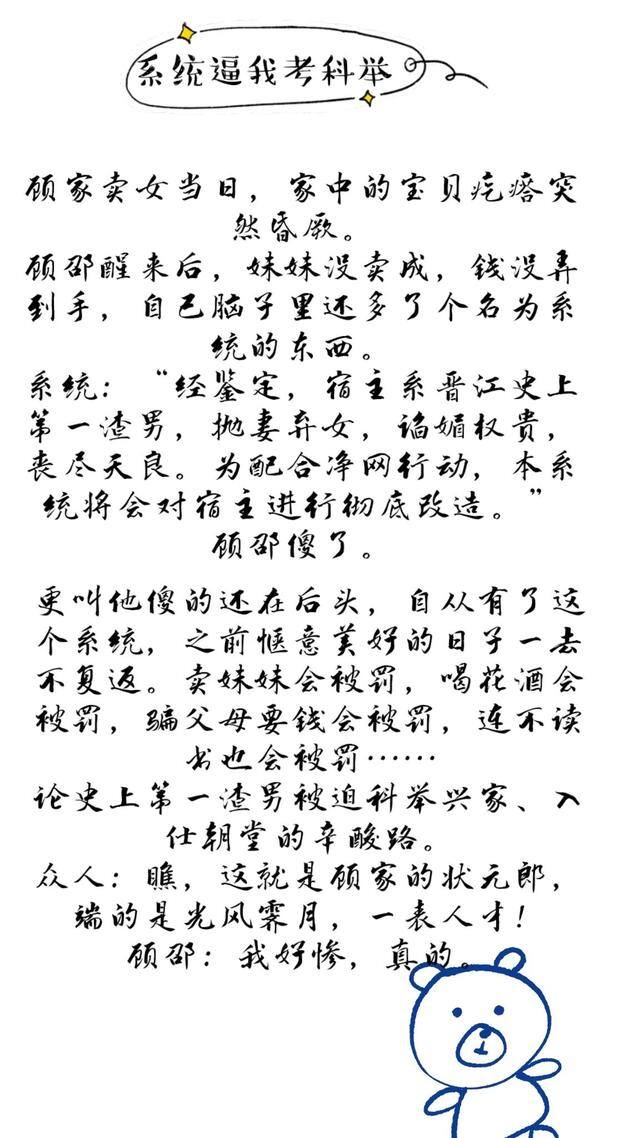 系统逼我考科举
顾家卖女当日，家中的宝贝疙瘩突
然昏厥。
顾邵醒来后，妹妹没卖成，钱没弄
到手，自己脑子里还多了个名为系
统的东西。
系统：“经鉴定，宿主系晋江史上
第一渣男，抛妻弃女，谄媚权贵，
丧尽天良。为配合净网行动，本系
统将会对宿主进行彻底改造。”
顾邵傻了。
更叫他傻的还在后头，自从有了这
个系统，之前惬意美好的日子一去
不复返。卖妹妹会被罚，喝花酒会
被罚，骗父母要钱会被罚，连不读
书也会被罚……
论史上第一渣男被迫科举兴家、入
仕朝堂的辛酸路。
众人：瞧，这就是顾家的状元郎，
端的是光风霁月，一表人才！
顾邵：我好惨，真的。